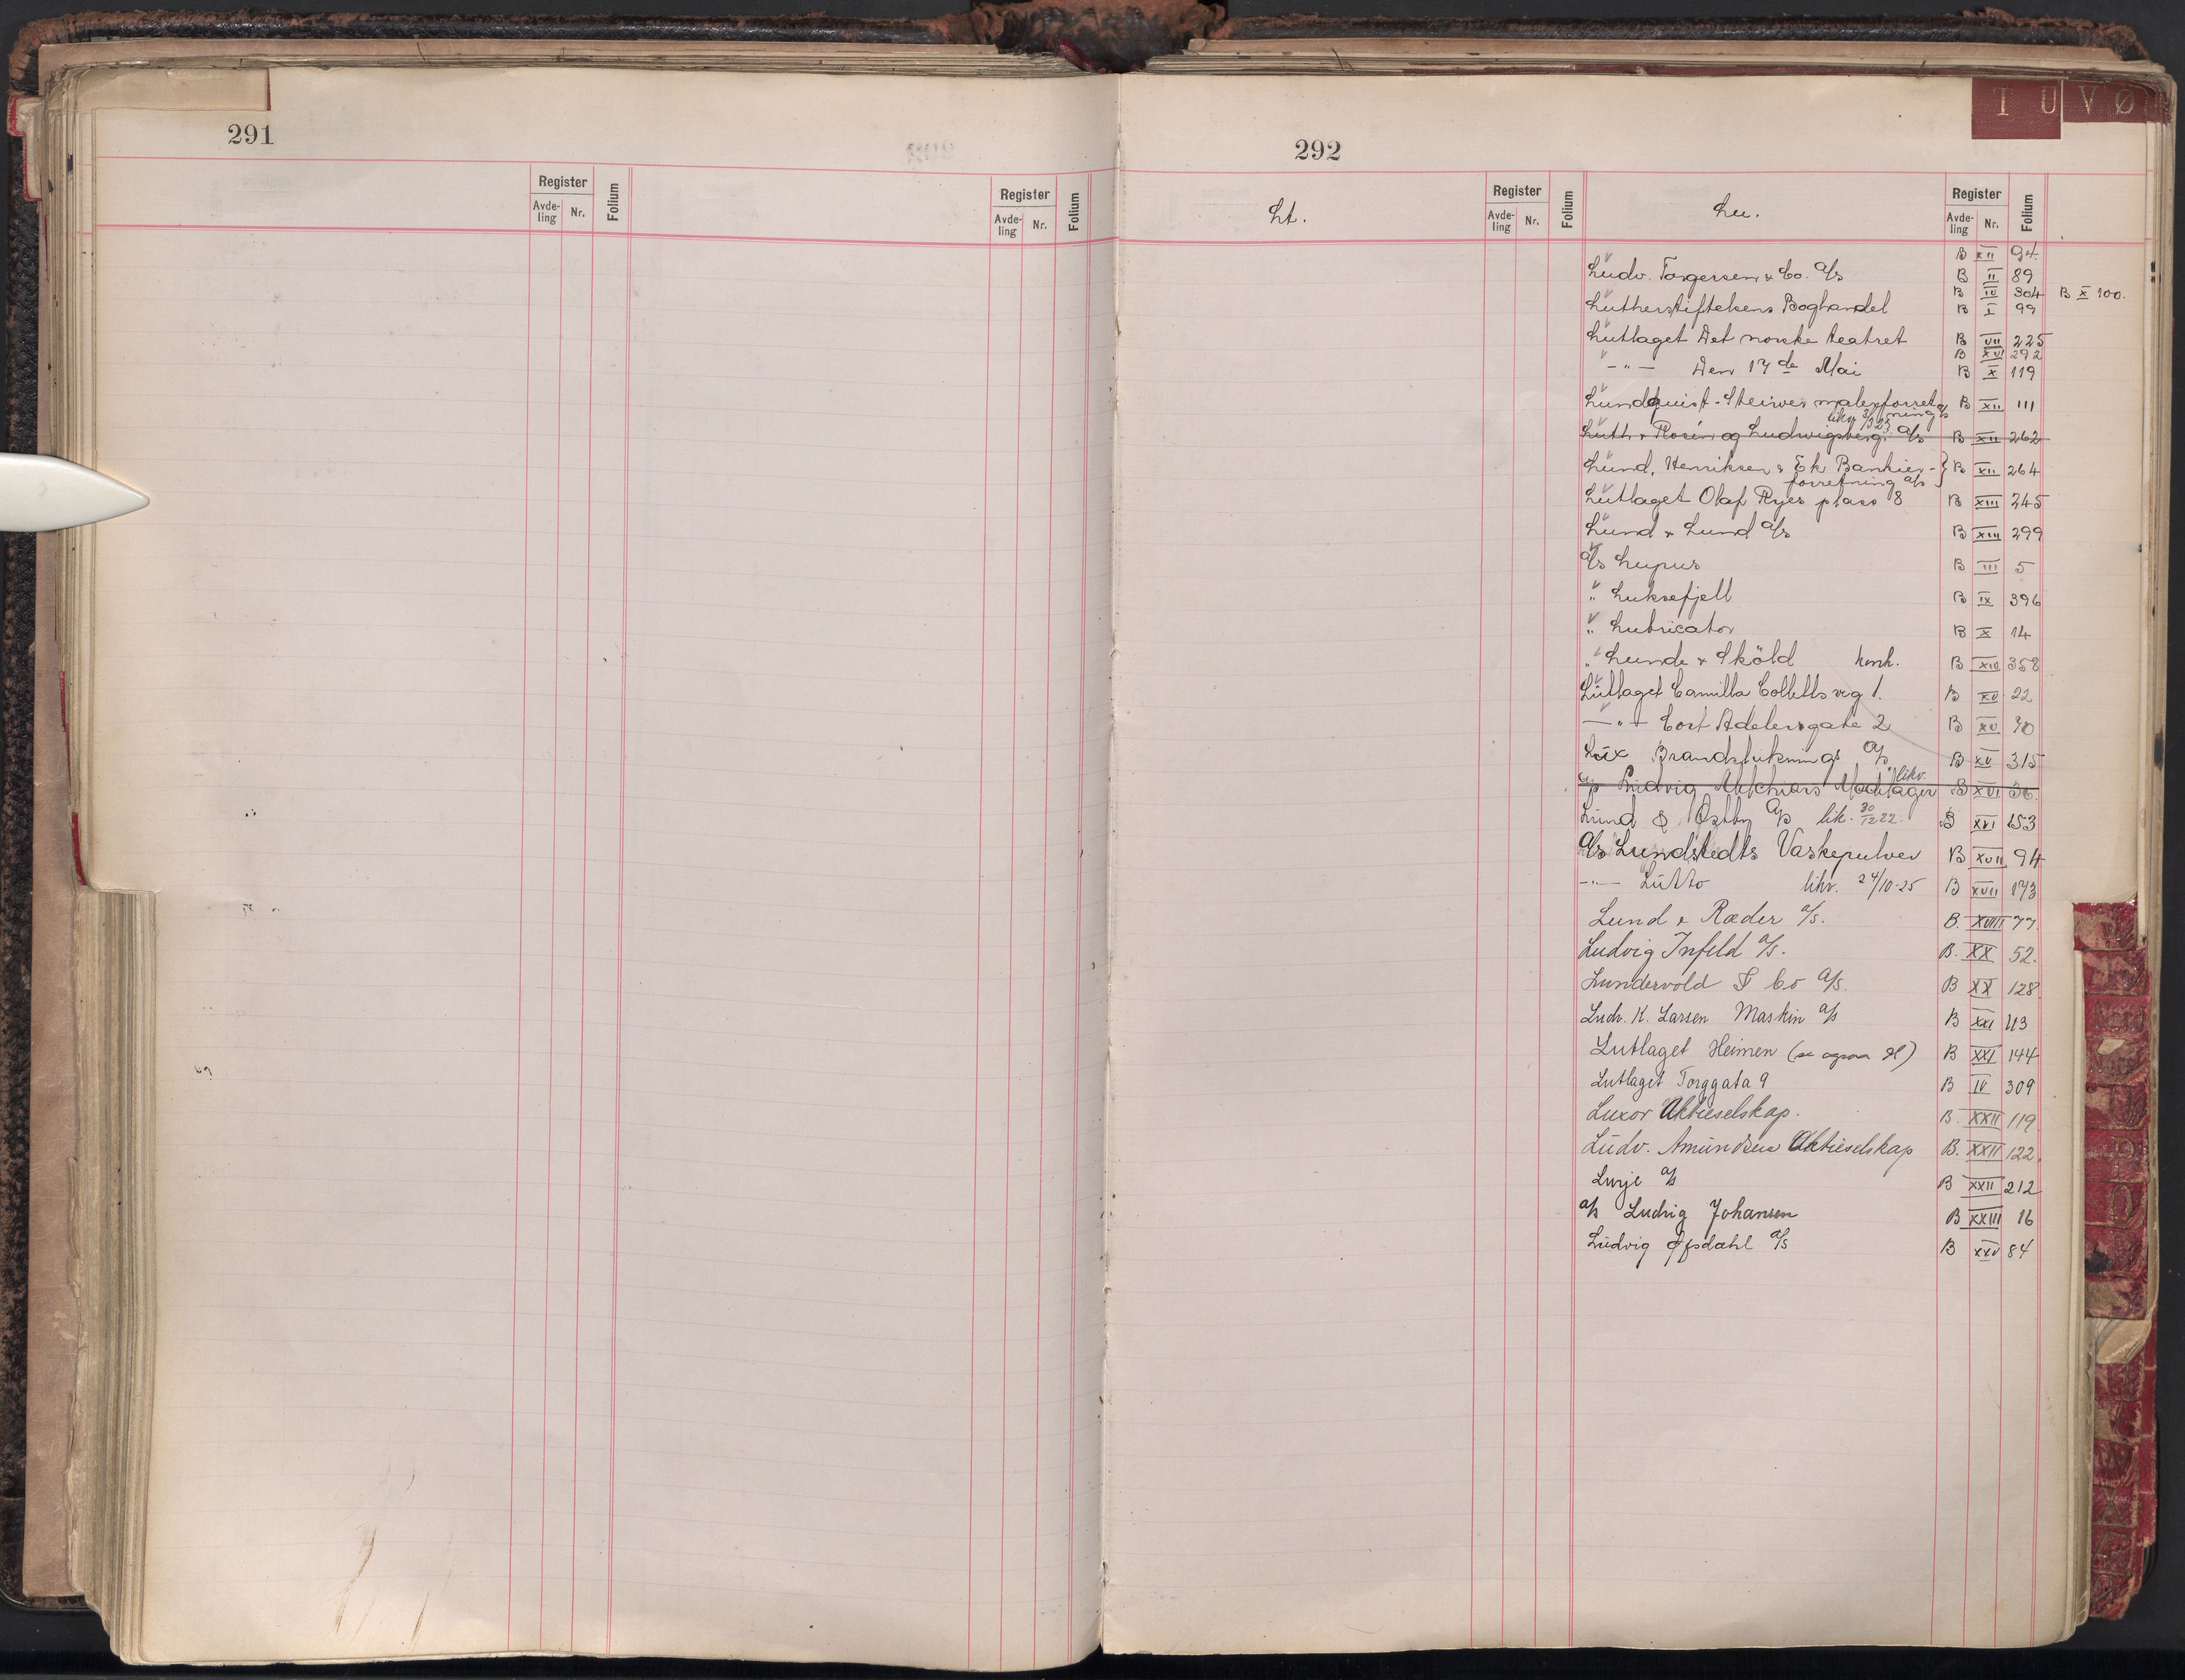 291
Register
Avde-
ling
Nr.
Folium
Register
Avde-
ling
Nr.
Folium
292
T U V Ø
Lt.
Register
Avde-
ling
Nr.
Folium
Lu.
Register
Avde-
ling
Nr.
Folium
B XII 94
Ludv. Torgersen & Co. A/s B II 89
B IV 304 B X 100.
Lutherstiftelsens Boghandel B I 99
Lutlaget Det norske teatret B VII 225
B XVI 292
-"- Den 17de Mai B X 119
Lundquist-Steives malerforret- B XII 111
ning A/s
likv. 3/3 23.
Luth & Rosén og Ludwigsberg. A/s B XII 262
Lund, Henriksen & Ek Bankier- } B XII 264
forretning A/s
Lutlaget Olaf Ryes plass 8 B XIII 245
Lund & Lund A/s B XIII 299
A/s Lupus B III 5
" Luksefjell B IX 396
" Lubricator B X 14
" Lunde & Sköld konk. B XIV 358
Lutlaget Camilla Colletts veg 1. B XV 22
-"- Cort Adelersgate 2 B XV 70
Lux Brandslukning A/s B XV 315
likv.
A/s Ludvig Melchiors Modelager B XVI 36.
Lund & Østby A/s lik. 30/12 22. B XVI 153
A/s Lundstedts Vaskepulver B XVII 94
-"- Lutto likv. 24/10-25 B XVII 173
Lund & Ræder A/s. B. XVIII 77
Ludvig Infeld A/s. B. XX 52.
Lundervold & Co A/s. B XX 128
Ludv. K. Larsen Maskin A/s B XXI 113
Lutlaget Heimen (se ogsaa H) B XXI 144
Lutlaget Torggata 9 B IV 309
Luxor Aktieselskap. B. XXII 119
Ludv. Amundsen Aktieselskap B. XXII 122
A/s B XXII 212
A/s Ludvig Johansen B XXIII 16
Ludvig Øfsdahl A/s B XXV 84